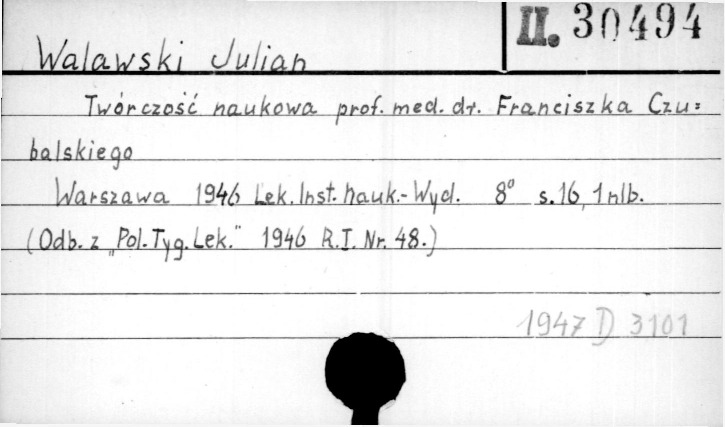 II. 30494
Walawski Julian
Twórczość naukowa prof. med. dr. Franciszka Czu=
balskiego
Warszawa 1946 Lek. Inst. nauk.-Wyd. 8° s.16, 1 nlb.
(Odb. z „Pol. Tyg. Lek." 1946 R.I. Nr. 48.)
1947 D 3101